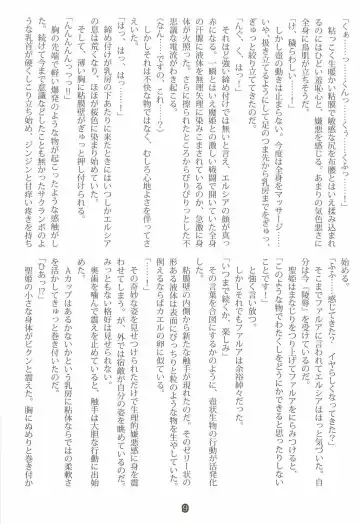 「くぁ……っ……くんっ……くうっ……くふぅっ」
粘っこく生暖かい粘膜で敏感な尻を布腰とはいえ揉み込まれるのはひどい羞恥心と、嫌悪を感じる。あまりの気色悪さに全身に鳥肌が立ちそうだ。
「は、穢らわしい……！」
しかし壺の動きは止まらない。今度は全身をマッサージ……いや、抜き立てるようにして足のつま先から乳房までをぎゅっぎゅっと絞り立ててきたのだ。
「んく、くぅっ……」
それほど強い締め付けでは無いとはいえ、エルシアの顔が真っ赤になる。一瞬とはいえ魔姫との激しい戦闘で開いていた全身の汗腺に液体が無理矢理に染み込まされているのか、急激に身体が火照った。さらに擦られたところからぴりぴりっとした不思議な電流がわき起こる。
(なん……ですの、これ……？)
しかしそれは不快な物ではなく、むしろ心地よさすら覚えていた。
「はっ、はっ、はっ……」
締め付けが乳房の下あたりに来たときにはいつしかエルシアの息は荒くなり、ほほが桜色に染まり始めていた。
そして、薄い胸に粘膜壁がぎゅっと押しつけられる。
「んんんんっっっ？」
胸の先端で軽い爆発のような物が起こったような感触がした。続けて今まで意識などしたこともなかったサクランボのような乳首が硬くしこり立ち始め、ジンジンと甘痒い疼きを持ち
始める。
「ふふ……感じてきた？　イヤらしくなってきた？」
そこまでファルアに言われてエルシアははっと気づいた。自分は今『陵辱』を受けているのだと。
聖姫はまなじりをつり上げてファルアをにらみつけると、
「このような物でわたくしをどうにかできると思ったりしないことですッ！」
と強く言い放つ。
しかしそれでもファルアは余裕綽々だった。
「いつまで続くか、楽しみ」
その言葉を合図にするかのように、壺状生物の行動が活発化した。
粘膜壁の内側から新たな触手が現れたのだ。そのゼリー状の形ある液体は表面にびっちりと粒のような物を生やしていた。例えるならばカエルの卵に似ている。
「……！」
その奇妙な姿を見せつけられただけで生理的嫌悪感に身を震わせてしまう。が、外では宿敵が自分の姿を眺めているのだ。みっともない格好は見せられない。
奥歯を噛んで震えを止めていると、触手は大胆な行動に出始めた。
Aカップはあるかないかという乳房に粘体ならではの柔軟さを活かしてきゅっと巻き付いたのだ。
「ひぁっ!?」
聖姫の小さな身体がビクンと震えた。胸にぬめりと巻き付か
9